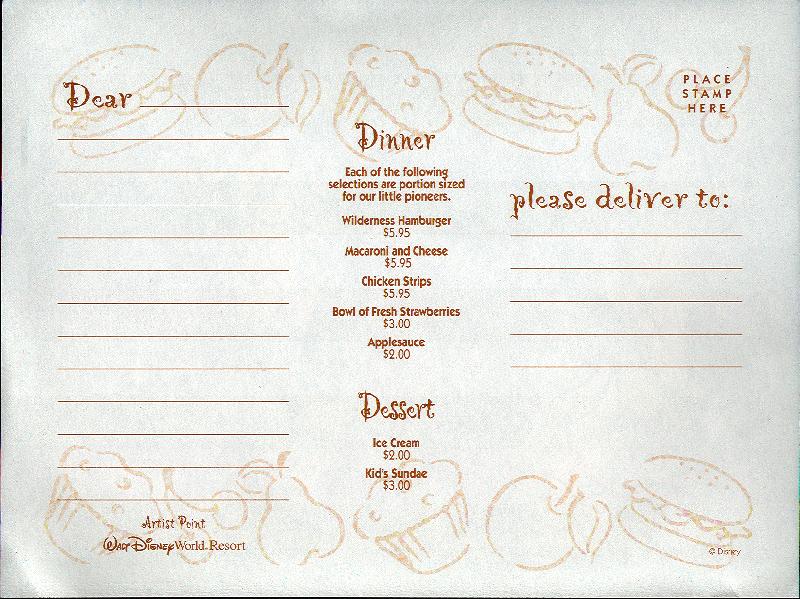 Dear
Dinner
Each of the following
selections are portion sized
for our little pioneers.
Wilderness Hamburger
$5.95
Macaroni and Cheese
$5.95
Chicken Strips
$5.95
Bowl of Fresh Strawberries
$3.00
Applesauce
$2.00
Dessert
Ice Cream
$2.00
Kid's Sundae
$3.00
Artist Point
Walt Disney World Resort
PLACE
STAMP
HERE
please deliver to:
© Disney